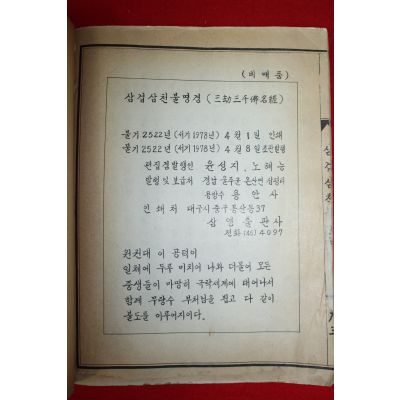 (비매품)
삼겁삼천불명경 (三劫三千佛名經)
불기 2522년 (서기 1978년) 4월 1일 인쇄
불기 2522년 (서기 1978년) 4월 8일 초판발행
편집겸발행인 윤성지. 노해능
발행 및 보급처 경남 울주군 온산면 삼평리
용방수 용안사
인쇄처 대구시중구동산동37
삼영출판사
전화 (46) 4097
원컨대 이 공덕이
일체에 두루 미치어 나와 더불어 모든
중생들이 마땅히 극락세계에 태어나서
함께 무량수 부처님을 뵙고 다 같이
불도를 이루어지이다.
삼겁삼천